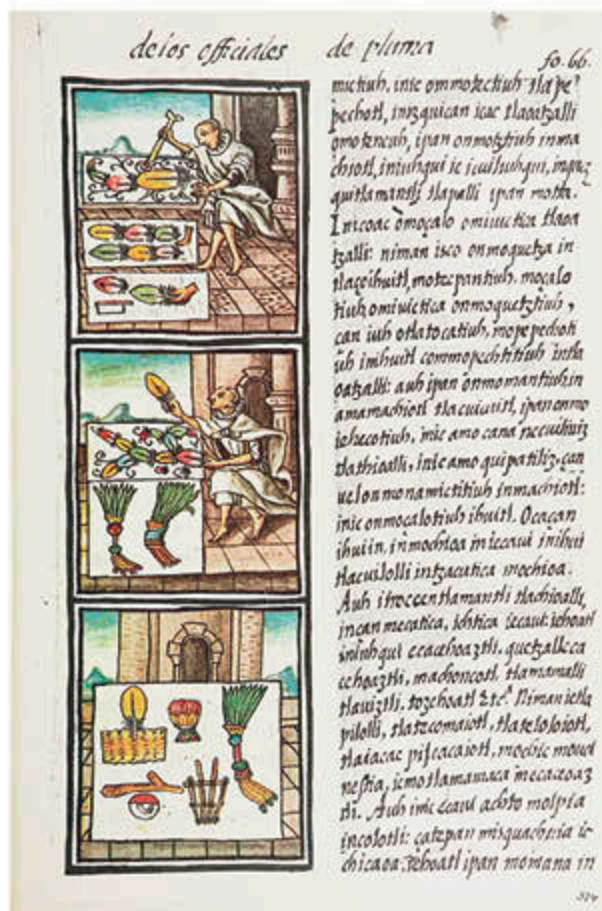 de los officiales de pluma
fo. 66.
mictiuh, inic ommotectiuh tlape
pechotl, inizquican icac tlaoatzalli
omotencuh, ipan onmotztiuh inma
chiotl, iniuhqui ic icuiliuhqui, inquez
quitlamantli tlapalli ipan motta.
Inicoac omoçalo omiuictica tlaoa
tzalli: niman isco onmoquetza in
tlaçoihuitl, motecpantiuh, moçalo
tiuh omiuictica onmoquetztiuh,
can iuh otlatocatiuh, mopepechoti
uh imhuitl commopechtitiuh intla
oatzalli: auh ipan onmomantiuh in
amamachiotl tlacuicuitl, ipan onmo
iehecotiuh, inic amo cana necuiliuiz
tlachioalli, inic amo quipatiliz, çan
uel onmonamictitiuh inmachiotl:
inic onmoçalotiuh ihuitl. Ocaçan
ihui in, inmochioa iniccaui inihui
tlacuilolli intzacutica mochioa.
Auh itroccentlamantli tlachioalli,
incan mecatica, ichtica iecaui: iehoatl
iniuhqui ecacehoaztli, quetzalleca
cehoaztli, machoncotl, tlamamalli
tlauiztli, tozehoatl &tc. Niman ietla
pilolli, tlatzcomaiotl, tlatelolotl,
tlaiacac pilcacaiotl, mochic moue
nestia, icmotlamamaca mecaceoaz
tli. Auh inic ecaui achto molpia
incolotli: çatepan
chicaoa: iehoatl ipan momana in